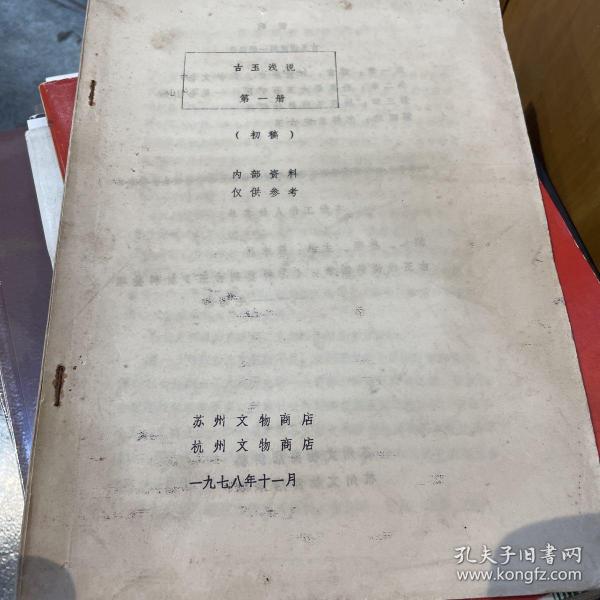 古玉浅说
第一册
（初稿）
内部资料
仅供参考
苏州文物商店
杭州文物商店
一九七八年十一月
孔夫子旧书网
www.kongfz.com